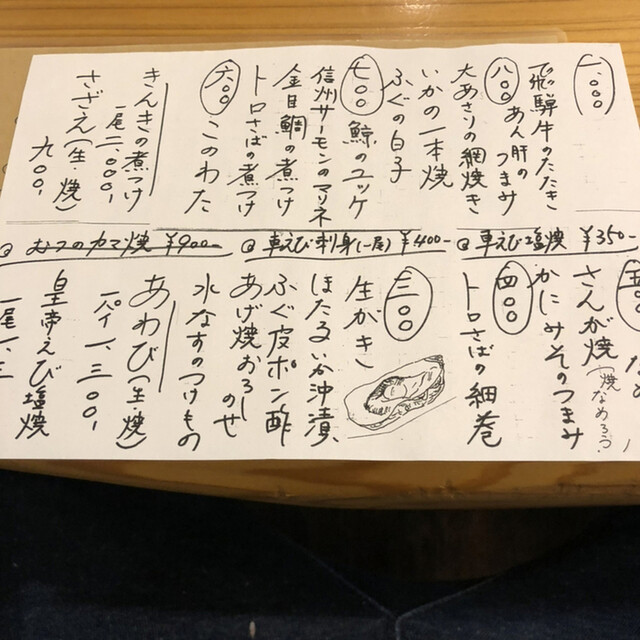 一〇〇〇
飛騨牛のたたき
あん肝のつまみ
八〇〇
大あさりの網焼き
いかの一本焼
ふぐの白子
七〇〇
鯨のユッケ
信州サーモンのマリネ
金目鯛の煮つけ
トロさばの煮つけ
六〇〇
このわた
きんきの煮つけ
一尾二、〇〇〇、
さざえ(生・焼)
九〇〇、
車えび塩焼 ¥350-
車えび刺身(一尾) ¥400-
カマ焼 ¥900-
五〇
さんが焼(焼なめろう)
かにみそのつまみ
四〇〇
トロさばの細巻
三〇〇
生がき
ほたるいか沖漬
ふぐ皮ポン酢
あげ焼おろしのせ
水なすのつけもの
あわび(生・焼)
一パイ一、三〇〇、
皇帝えび塩焼
一尾一、三